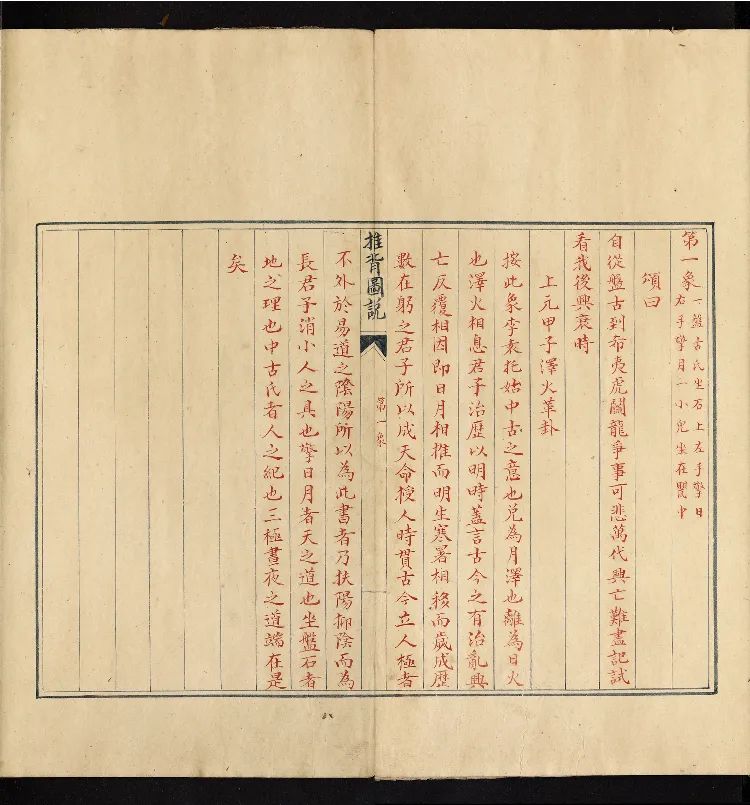 第一象
一盤古氏坐石上左手擎日
右手擎月一小兒坐在瓮中
頌曰
自從盤古到希夷虎鬭龍爭事可悲萬代興亡難盡記試
看我後興衰時
上元甲子澤火革卦
按此象李袁托始中古之意也兌為月澤也離為日火
也澤火相息君子治歷以明時蓋言古今之有治亂興
亡反覆相因即日月相推而明生寒暑相移而歲成歷
數在躬之君子所以成天命授人時貫古今立人極者
推背圖説
第一象
不外於易道之陰陽所以為此書者乃扶陽抑陰而為
長君子消小人之具也擎日月者天之道也坐盤石者
地之理也中古氏者人之紀也三極晝夜之道端在是
矣